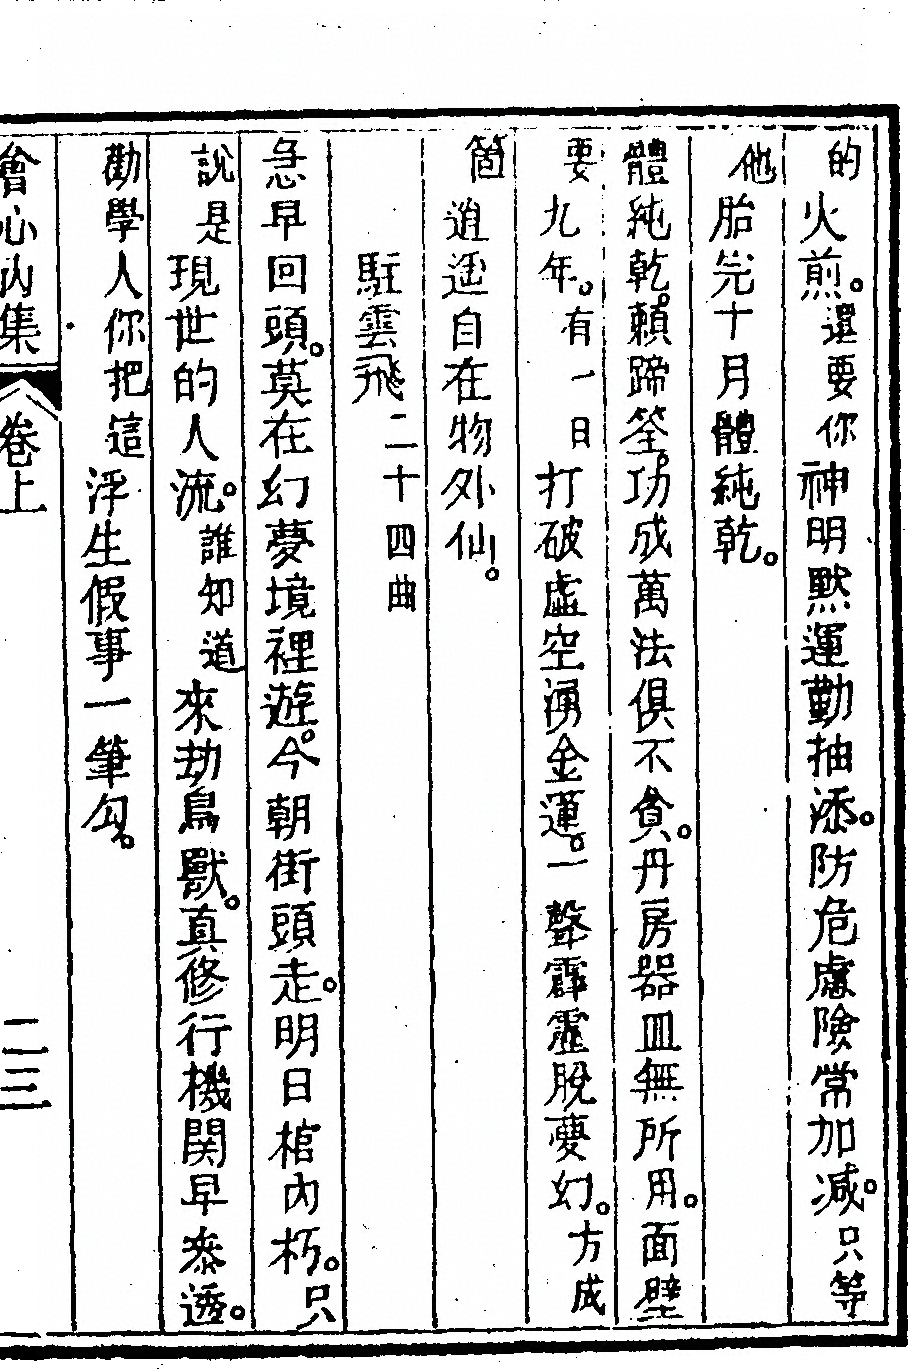 的火煎。還要你神明默運勤抽添。防危慮險常加减。只等
他胎完十月體純乾。
體純乾。賴蹄筌。功成萬法俱不貪。丹房器皿無所用。面壁
要九年。有一日打破虛空湧金蓮。一聲霹靂脫夢幻。方成
箇逍遥自在物外仙。
駐雲飛二十四曲
急早回頭。莫在幻夢境裡遊。今朝街頭走。明日棺內朽。只
說是現世的人流。誰知道來劫鳥獸。真修行機関早叅透。
勸學人你把這浮生假事一筆勾。
會心內集 卷上 二三